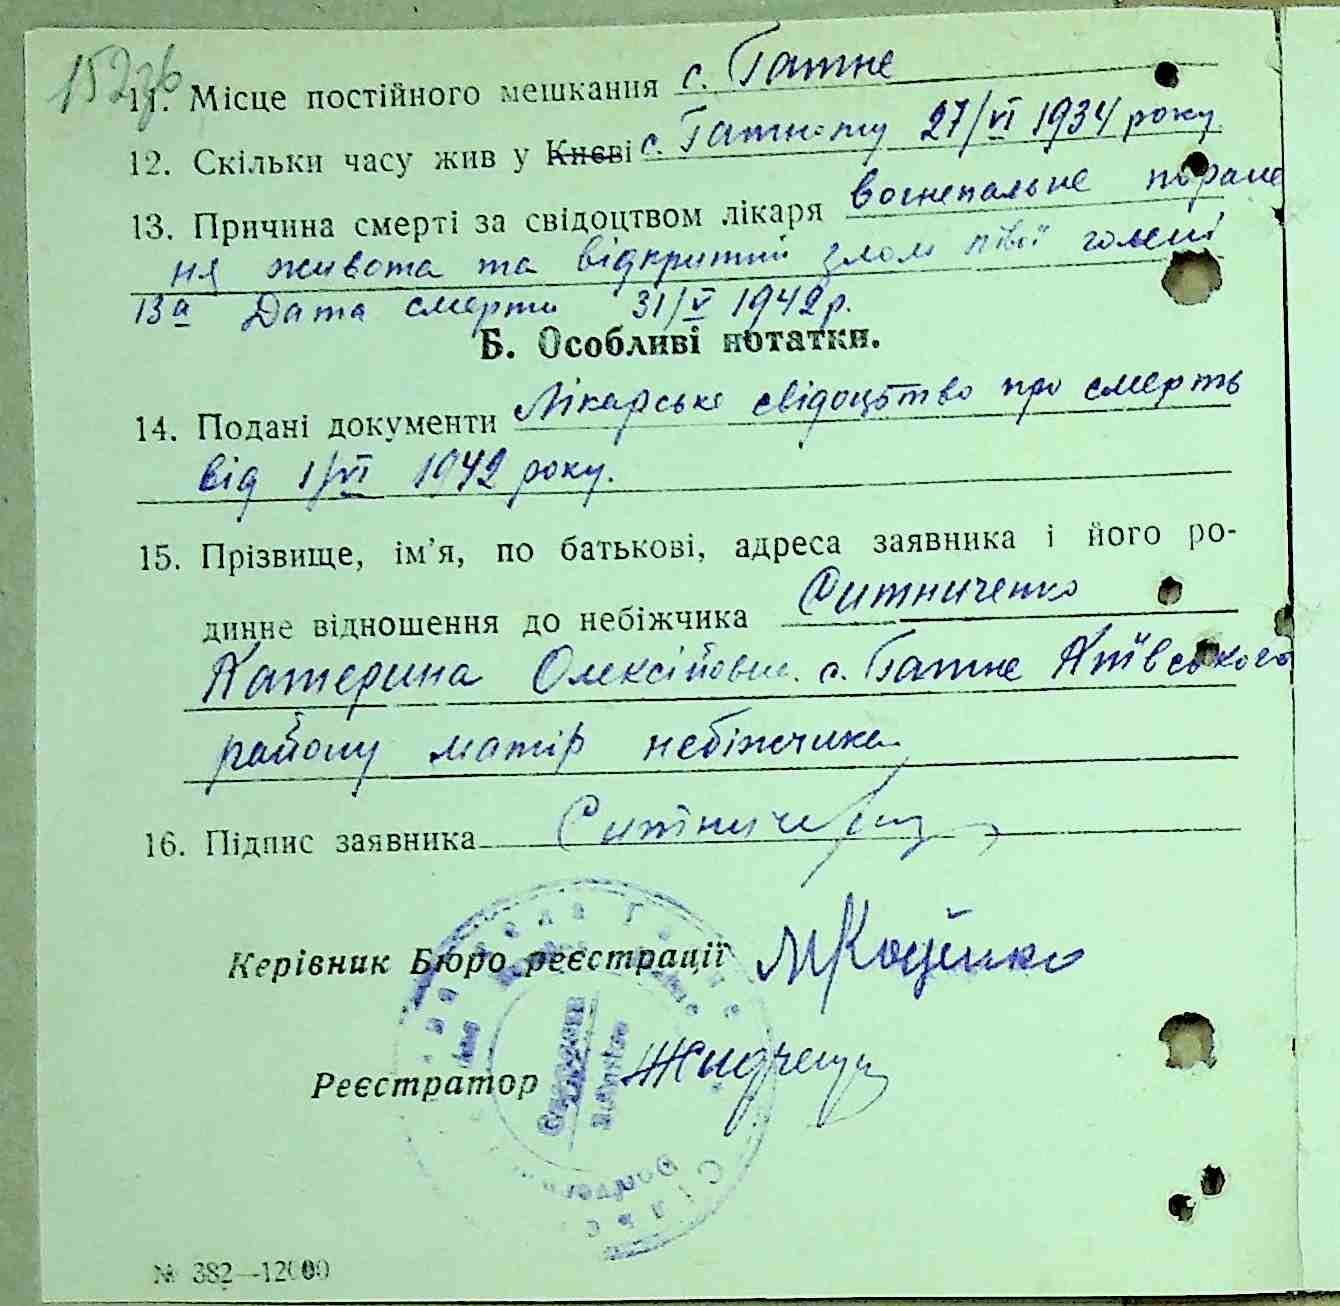 152зв
11. Місце постійного мешкання с. Гатне
12. Скільки часу жив у Києві с. Гатному 27/VI 1934 року
13. Причина смерті за свідоцтвом лікаря вогнепальне поране
ня живота та відкритий злом лівої голені
13а Дата смерти 31/V 1942 р.
Б. Особливі нотатки.
14. Подані документи Лікарське свідоцтво про смерть
від 1/VI 1942 року.
15. Прізвище, ім'я, по батькові, адреса заявника і його ро-
динне відношення до небіжчика Ситниченко
Катерина Олексіївна с. Гатне Київського
району матір небіжчика
16. Підпис заявника
Керівник Бюро реєстрації МКоценко
Реєстратор
№ 382—12000